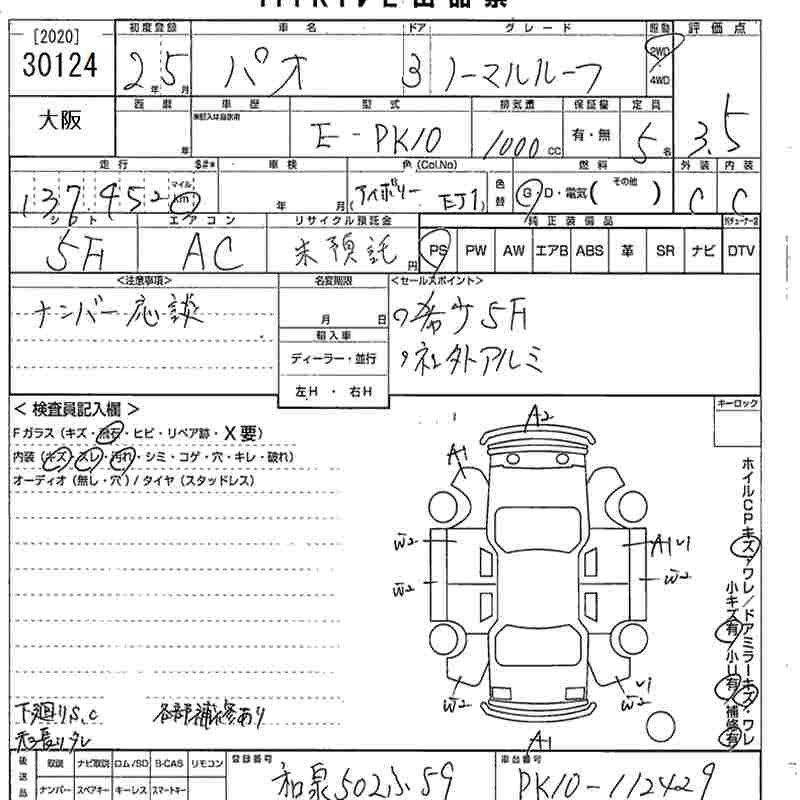 [2020]
30124
初度登録 車名 ドア グレード 駆動 評価点
2年 5月 パオ 3 ノーマルルーフ 2WD 4WD
3.5
大阪
西暦 車歴 型式 排気量 保証書 定員
※記入は自家用
年 E-PK10 1000 CC 有・無 5名
走行 $#* 車検 色(Col.No) 燃料 外装 内装
137,452 マイル km 年 月 アイボリー EJ1 色替 G・D・電気( その他 ) C C
シフト エアコン リサイクル預託金 純正装備品
5F AC 未預託 円 PS PW AW エアB ABS 革 SR ナビ DTV
<注意事項> 名変期限 <セールスポイント>
ナンバー応談 月 日 希少5F
輸入車
ディーラー・並行 社外アルミ
左H・右H
<検査員記入欄> キーロック
Fガラス(キズ・飛石・ヒビ・リペア跡・X要)
内装(キズ・スレ・汚れ・シミ・コゲ・穴・キレ・破れ)
オーディオ(無し・穴)/タイヤ(スタッドレス)
A2
A1
W2 A1 U1
W2 W2
W2 U1 W2
A1
ホイルCPキズ・ワレ/ドアミラーキズ・ワレ
小キズ有/小U有/補修有
下廻りS,C 各部補修あり
後送品 取説 ナビ取説 ロム/SD B-CAS リモコン 登録番号 車台番号
ナンバー スペアキー キーレス スマートキー 和泉502ふ59 PK10-112429